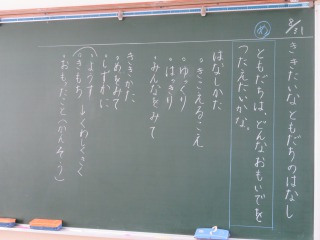 8/31
ききたいな ともだちのはなし
め
ともだちは、どんなおもいでを
つたえたいかな。
はなしかた
。きこえるこえ
。ゆっくり
。はっきり
。みんなをみて
ききかた
。めをみて
。しずかに
。ようす
。きもち
くわしくきく
。おもったこと(かんそう)